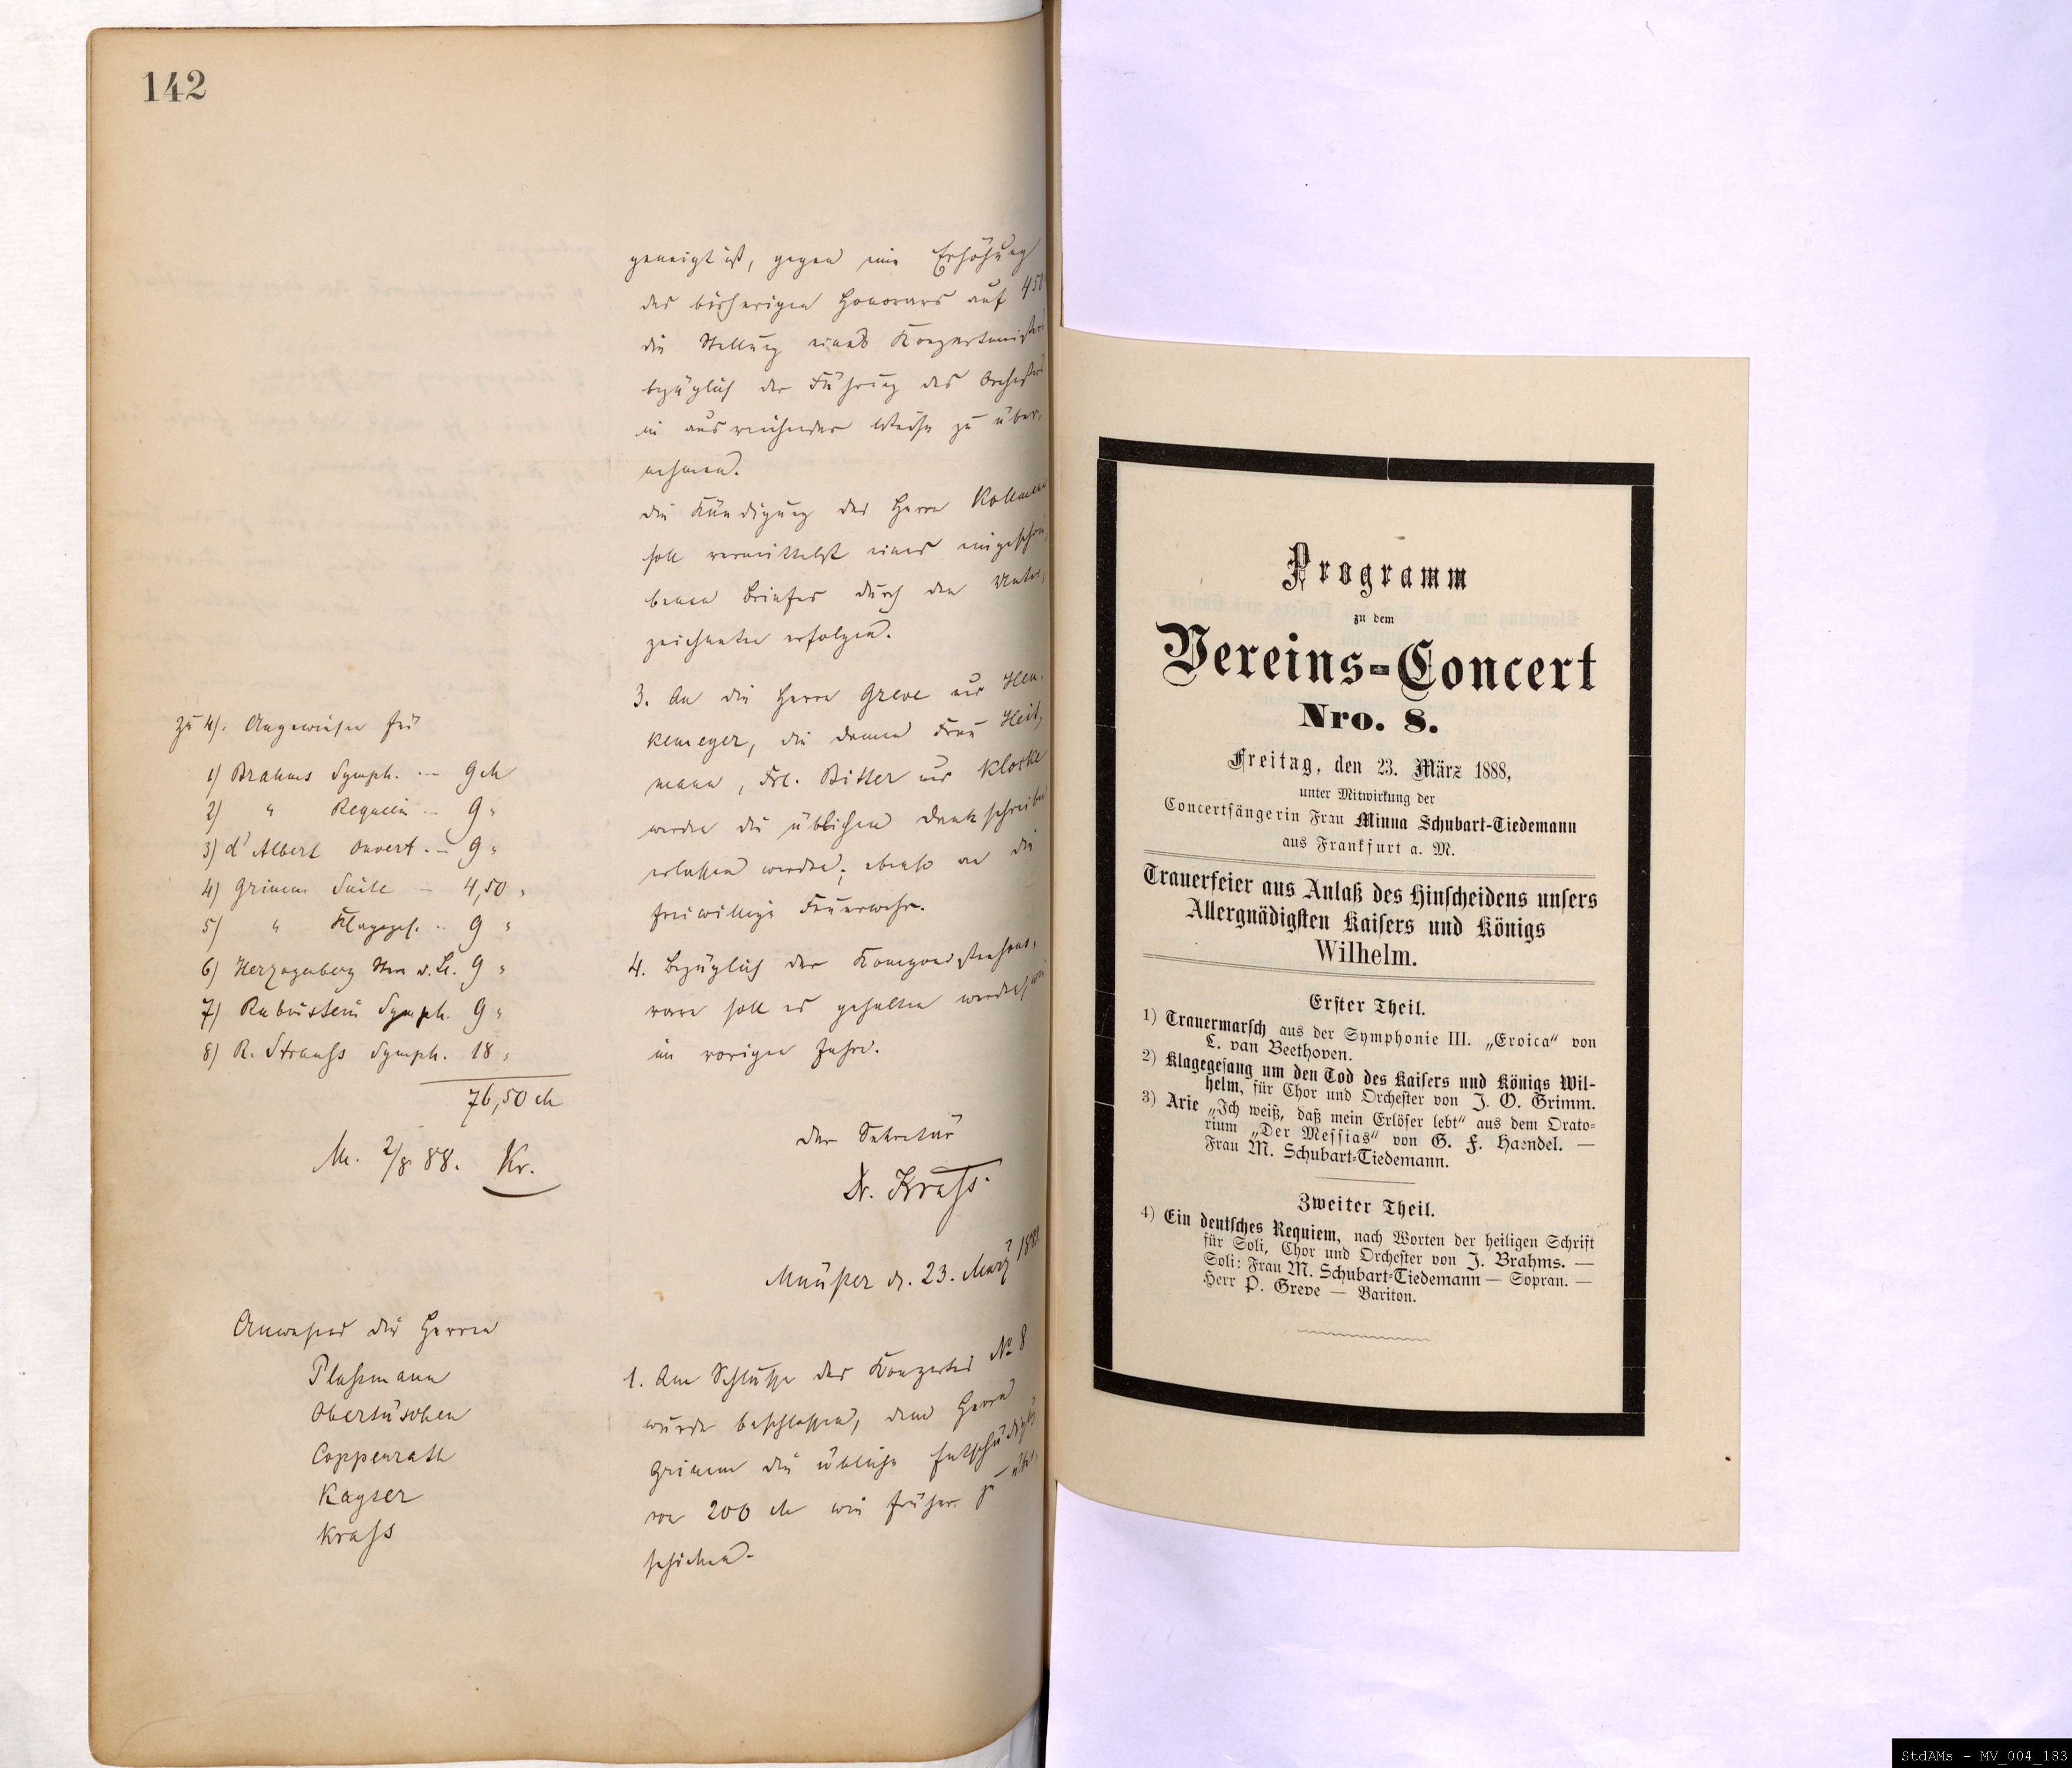 142
geneigt ist, gegen eine Erhöhung
des bisherigen Honorars auf 450
die Stellung eines Konzertmeisters
bezüglich der Führung des Orchesters
in ausreichender Weise zu über-
nehmen.
die Kündigung des Herrn
soll vermittelst eines eingeschrie-
benen Briefes durch den Unter-
zeichneten erfolgen.
3. An die Herrn Greve und Hen-
kemeyer, die Damen Frau Heit-
mann, Frl. Bitter und Klocke
werden die üblichen Dankschreiben
erlassen werden; ebenso an die
freiwillige Feuerwehr.
4. Bezüglich der Komponistenhono-
rare soll es gehalten werden, wie
im vorigen Jahre.
Der Sekretär
Dr. Krass.
zu 4). Angewiesen für
1) Brahms Symph. -- 9 M
2) " Requiem -- 9 "
3) d'Albert Ouvert. -- 9 "
4) Grimm Suite -- 4,50 "
5) " Klagges. -- 9 "
6) Herzogenberg 9 "
7) Rubinstein Symph. 9 "
8) R. Strauss Symph. 18 "
76,50 M
M. 2/8 88. Kr.
Münster d. 23. März 1888
Anwesend die Herren
Plassmann
Obertüschen
Coppenrath
Kayser
Krass
1. Am Schlusse des Konzertes No 8
wurde beschlossen, dem Herrn
Grimm die übliche Entschädigung
von 200 M wie früher zu über-
schicken.
Programm
zu dem
Vereins-Concert
Nro. 8.
Freitag, den 23. März 1888,
unter Mitwirkung der
Concertsängerin Frau Minna Schubart-Tiedemann
aus Frankfurt a. M.
Trauerfeier aus Anlaß des Hinscheidens unsers
Allergnädigsten Kaisers und Königs
Wilhelm.
Erster Theil.
1) Trauermarsch aus der Symphonie III. „Eroica“ von
L. van Beethoven.
2) Klagegesang um den Tod des Kaisers und Königs Wil-
helm, für Chor und Orchester von J. O. Grimm.
3) Arie „Ich weiß, daß mein Erlöser lebt“ aus dem Orato-
rium „Der Messias“ von G. F. Haendel. —
Frau M. Schubart-Tiedemann.
Zweiter Theil.
4) Ein deutsches Requiem, nach Worten der heiligen Schrift
für Soli, Chor und Orchester von J. Brahms. —
Soli: Frau M. Schubart-Tiedemann — Sopran. —
Herr P. Greve — Bariton.
StdAMs - MV_004_183